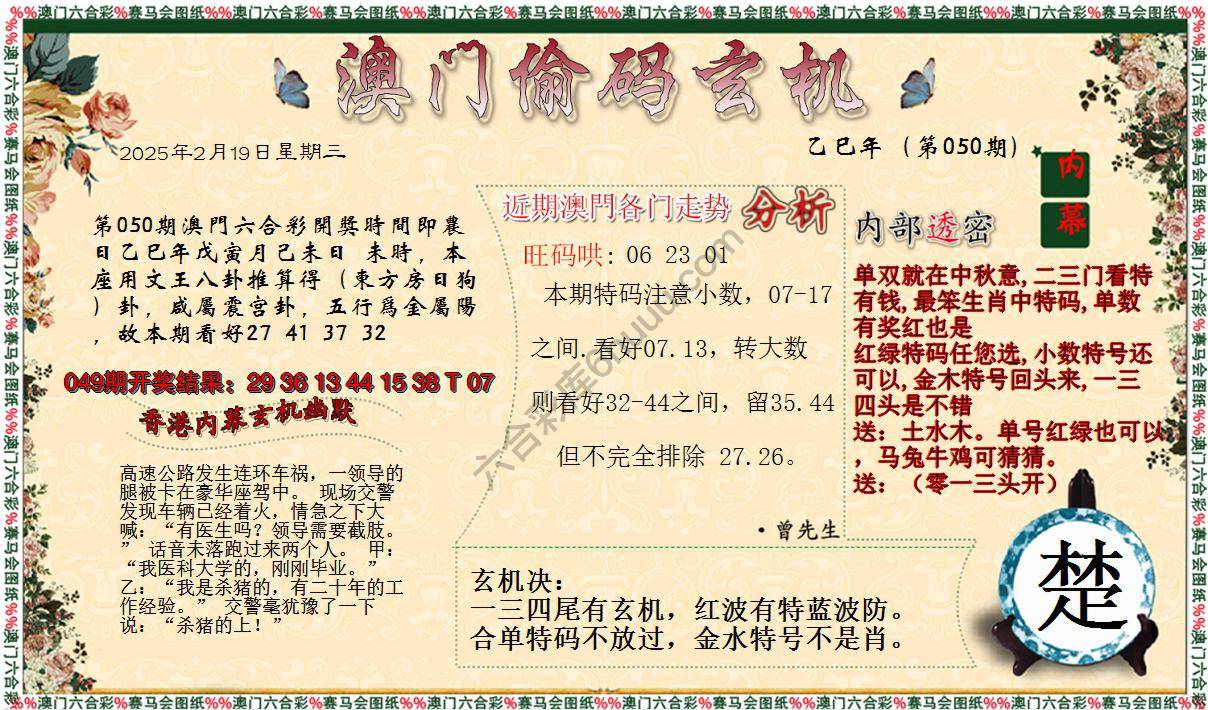 %%澳门六合彩%赛马会图纸%%澳门六合彩%赛马会图纸%%澳门六合彩%赛马会图纸%%澳门六合彩%赛马会图纸%%澳门六合彩%赛马会图纸%%澳门六合彩%赛马会图纸%%
澳门偷码玄机
2025年2月19日星期三
乙巳年（第050期）
内幕
第050期澳門六合彩開獎時間即農
日乙巳年戊寅月己未日 未時，本
座用文王八卦推算得（東方房日狗
）卦，咸屬震宫卦，五行爲金屬陽
，故本期看好27 41 37 32
049期开奖结果：29 36 13 44 15 38 T 07
香港内幕玄机幽默
高速公路发生连环车祸，一领导的
腿被卡在豪华座驾中。 现场交警
发现车辆已经着火，情急之下大
喊：“有医生吗？领导需要截肢。
” 话音未落跑过来两个人。 甲：
“我医科大学的，刚刚毕业。”
乙：“我是杀猪的，有二十年的工
作经验。” 交警毫犹豫了一下
说：“杀猪的上！”
近期澳門各门走势 分析
旺码哄: 06 23 01
本期特码注意小数，07-17
之间.看好07.13，转大数
则看好32-44之间，留35.44
但不完全排除 27.26。
·曾先生
内部透密
单双就在中秋意,二三门看特
有钱,最笨生肖中特码,单数
有奖红也是
红绿特码任您选,小数特号还
可以,金木特号回头来,一三
四头是不错
送：土水木。单号红绿也可以
，马兔牛鸡可猜猜。
送：（零一三头开）
玄机决：
一三四尾有玄机，红波有特蓝波防。
合单特码不放过，金水特号不是肖。
楚
%%澳门六合彩%赛马会图纸%%澳门六合彩%赛马会图纸%%澳门六合彩%赛马会图纸%%澳门六合彩%赛马会图纸%%澳门六合彩%赛马会图纸%%澳门六合彩%赛马会图纸%%